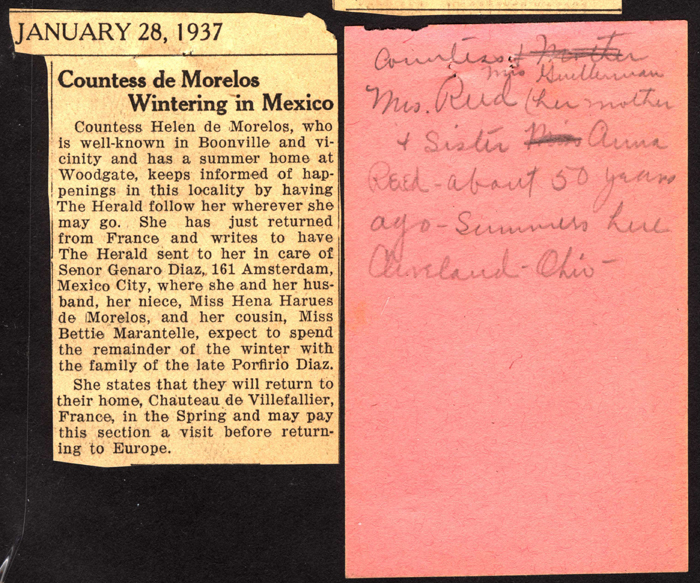 JANUARY 28, 1937
Countess de Morelos
Wintering in Mexico
Countess Helen de Morelos, who
is well-known in Boonville and vi-
cinity and has a summer home at
Woodgate, keeps informed of hap-
penings in this locality by having
The Herald follow her wherever she
may go. She has just returned
from France and writes to have
The Herald sent to her in care of
Senor Genaro Diaz, 161 Amsterdam,
Mexico City, where she and her hus-
band, her niece, Miss Hena Harues
de Morelos, and her cousin, Miss
Bettie Marantelle, expect to spend
the remainder of the winter with
the family of the late Porfirio Diaz.
She states that they will return to
their home, Chauteau de Villefallier,
France, in the Spring and may pay
this section a visit before return-
ing to Europe.
Countess & Mother
Mrs
Mrs. Reed (her mother
& Sister Miss Anna
Reed - about 50 years
ago - Summers here
Cleveland - Ohio -